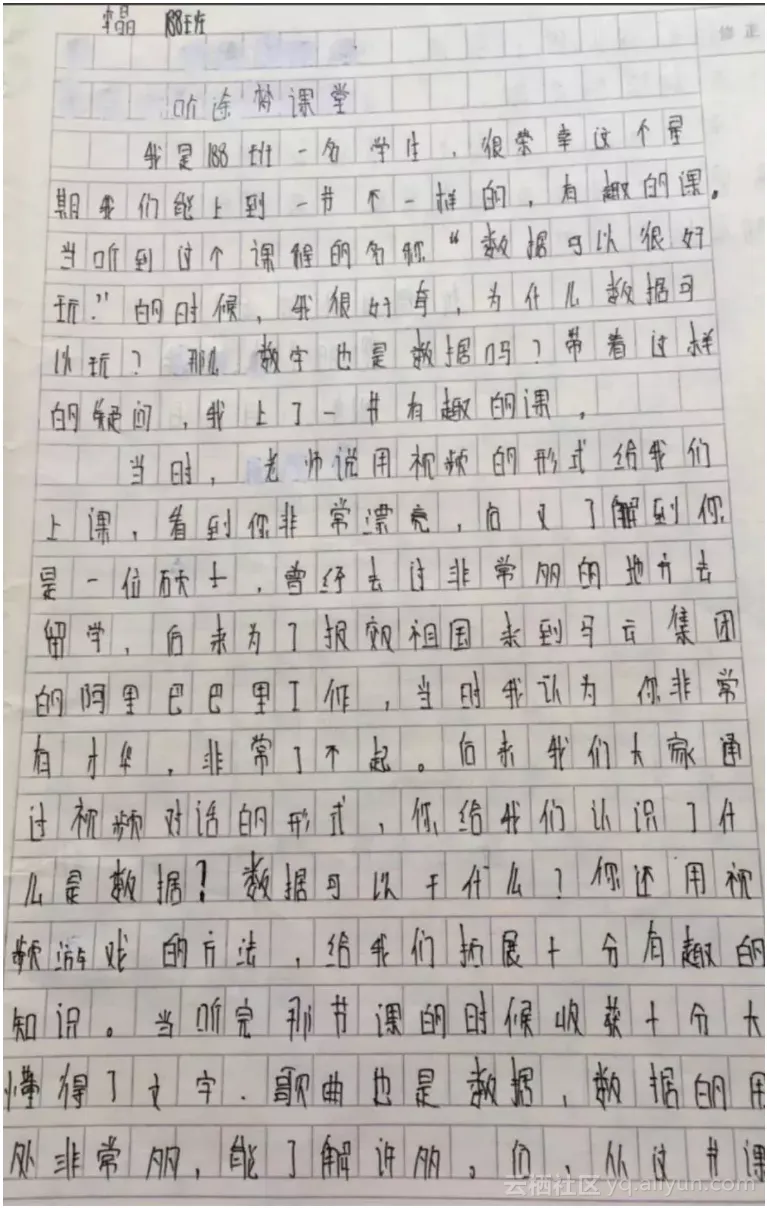 李晶 188班
修正
听途梦课堂
我是188班一名学生，很荣幸这个星
期我们能上到一节不一样的，有趣的课。
当听到这个课程的名称“数据可以很好
玩?”的时候，我很好奇，为什么数据可
以玩？那么数字也是数据吗？带着这样
的疑问，我上了一节有趣的课。
当时，老师说用视频的形式给我们
上课，看到你非常漂亮，后又了解到你
是一位硕士，曾经去过非常多的地方去
留学，后来为了报效祖国来到马云集团
的阿里巴巴里工作，当时我认为你非常
有才华，非常了不起。后来我们大家通
过视频对话的形式，你给我们认识了什
么是数据？数据可以干什么？你还用视
频游戏的方法，给我们拓展十分有趣的
知识。当听完那节课的时候收获十分大
懂得了文字．歌曲也是数据，数据的用
处非常多，能了解许多。们，从这节课
云栖社区 yq.aliyun.com